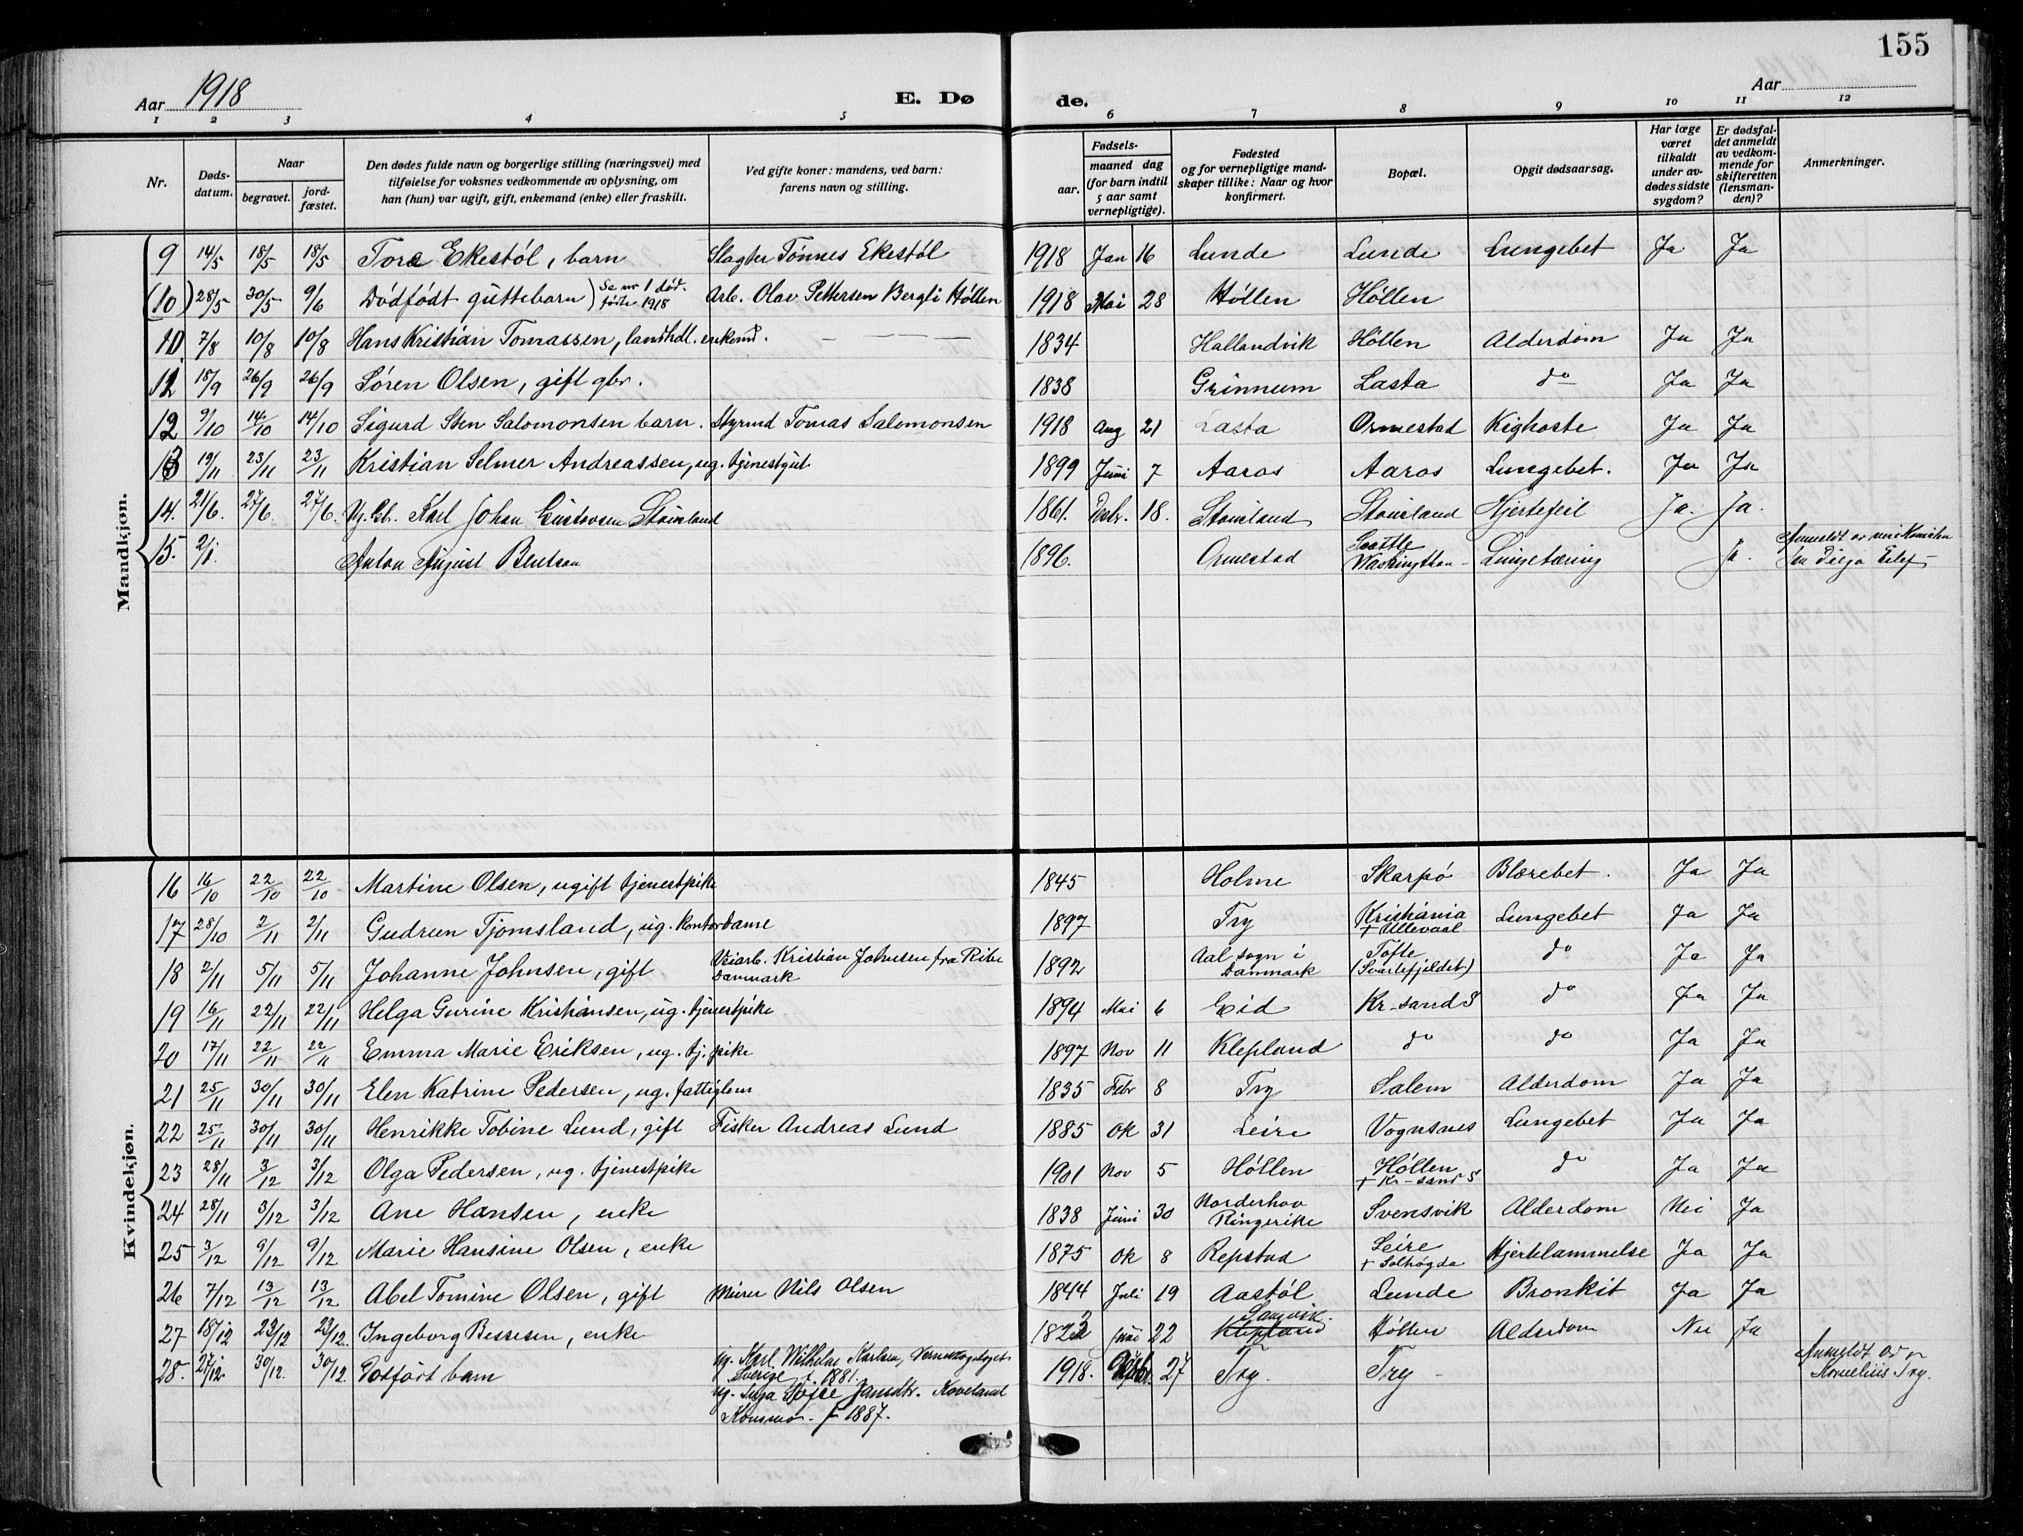 155
Aar 1918
E. Dø
de.
Aar
1 2 3 4 5 6 7 8 9 10 11 12
Nr.
Døds-datum.
Naar
begravet.
jord-fæstet.
Den dødes fulde navn og borgerlige stilling (næringsvei) med
tilføielse for voksnes vedkommende av oplysning, om
han (hun) var ugift, gift, enkemand (enke) eller fraskilt.
Ved gifte koner: mandens, ved barn:
farens navn og stilling.
Fødsels-
aar.
maaned dag
(for barn indtil
5 aar samt
vernepligtige).
Fødested
og for vernepligtige mand-
skaper tillike: Naar og hvor
konfirmert.
Bopæl.
Opgit dødsaarsag.
Har læge
været
tilkaldt
under av-
dødes sidste
sygdom?
Er dødsfal-
det anmeldt
av vedkom-
mende for
skifteretten
(lensman-
den)?
Anmerkninger.
Mandkjøn.
9 14/5 18/5 18/5 Tore Ekestøl, barn Slagter Tønnes Ekestøl 1918 Jan 16 Lunde Lunde Lungebet Ja Ja
(10) 28/5 30/5 9/6 Dødfødt guttebarn) Se nr 1 død-fødte 1918 Arb. Olav Pettersen Bergli Høllen 1918 Mai 28 Høllen Høllen
10. 7/8 10/8 10/8 Hans Kristian Tomassen, landhdl. enkemd. — — — 1834 Hallandvik Høllen Alderdom Ja Ja
12 18/9 26/9 26/9 Søren Olsen, gift gbr. 1838 Grinnum Lasta do Ja Ja
12 9/10 14/10 14/10 Sigurd Sten Salomonsen barn. Styrmd Tomas Salomonsen 1918 Aug 21 Lasta Ormestad Kighoste Ja Ja
13 19/11 23/11 23/11 Kristian Selmer Andreassen, ug. tjenestgut 1899 Juni 7 Aaros Aaros Lungebet. Ja Ja
14. 21/6. 27/6. 27/6. Ug. Gb. Karl Johan Gustavsen Stousland 1861. Decbr. 18. Stousland Stousland Hjertefeil Ja. Ja.
15. 2/1. Anton August Bentsen 1896. Ormestad Seattle Washingthon - Lungetæring Ja. Anmeldt av
Kvindekjøn.
16 16/10 22/10 22/10 Martine Olsen, ugift tjenestpike 1845 Holme Skarpø Blærebet. Ja Ja
17 28/10 2/11 2/11 Gudrun Tjomsland, ug. kontordame 1897 Try Kristiania + Ullevaal Lungebet Ja Ja
18 2/11 5/11 5/11 Johanne Johnsen, gift Veiarb. Kristian Johnsen fra Ribe Danmark 1892 Aal sogn i Danmark Tofte (Svartefjeldet) do Ja Ja
19 16/11 22/11 22/11 Helga Gurine Kristiansen, ug. tjenestpike 1894 Mai 6 Eid Kr-sand S do Ja Ja
20 17/11 22/11 22/11 Emma Marie Eriksen, ug. tj. pike 1897 Nov 11 Klepland do do Ja Ja
21 25/11 30/11 30/11 Elen Katrine Pedersen, ug. fattiglem 1835 Febr 8 Try Salem Alderdom Ja Ja
22 25/11 30/11 30/11 Henrikke Tobine Lund, gift Fisker Andreas Lund 1885 Ok 31 Leire Vognsnes Lungebet Ja Ja
23 28/11 3/12 3/12 Olga Pedersen, ug. tjenestpike 1901 Nov 5 Høllen Høllen + Kr-sand S do Ja Ja
24 28/11 3/12 3/12 Ane Hansen, enke 1838 Juni 30 Norderhov Ringerike Svensvik Alderdom Nei Ja
25 3/12 9/12 9/12 Marie Hansine Olsen, enke 1875 Ok 8 Repstad Leire + Solhøgda Hjertelammelse Ja Ja
26 7/12 13/12 13/12 Abel Tomine Olsen, gift Murer Nils Olsen 1844 Juli 19 Aastøl Lunde Bronkit Ja Ja
27 18/12 23/12 23/12. Ingeborg Bessesen, enke 1823 Juni 22 Klepland Høllen Alderdom Nei Ja
28. 27/12. 30/12. 30/12. Dødfødt barn Ug. Karl Wilhelm Karlsen, Sverige f. 1881. 1918. 27 Try. Try - Anmeldt av Kornelius Try.
Ug. Sofie Jansdtr. Kaveland
Konsmo. f 1887.